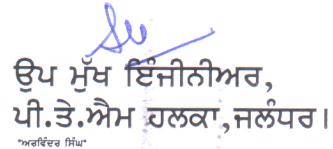 ਉਪ ਮੁੱਖ ਇੰਜੀਨੀਅਰ,
ਪੀ.ਤੇ.ਐਮ ਹਲਕਾ,ਜਲੰਧਰ।
"ਅਰਵਿੰਦਰ ਸਿੰਘ"